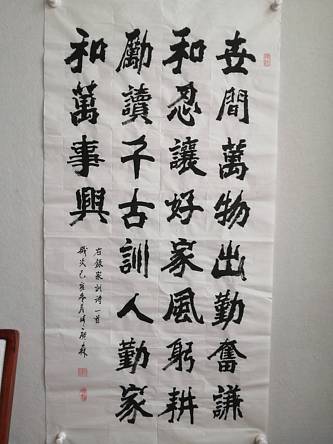 世間萬物出勤奮謙
和忍讓好家風躬耕
勵讀千古訓人勤家
和萬事興
右錄家訓詩一首
歲次己亥